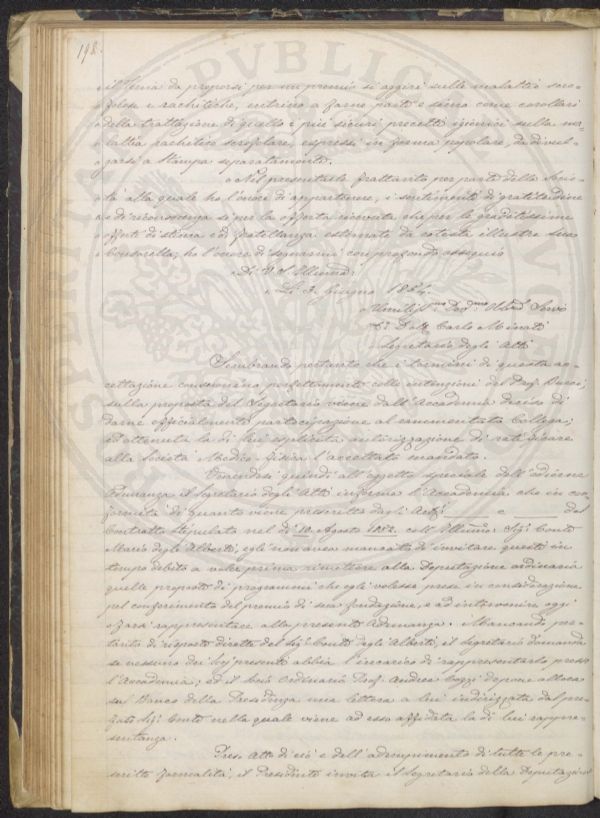 198.
il Tema da proporsi per un premio si aggiri sulle malattie scro=
folose e rachitiche, entrino a farne parte e sieno come corollari
della trattazione di quello i più sicuri precetti igienici sulla ma=
lattia rachitico scrofolare, espressi in forma popolare, da divul=
garsi a Stampa separatamente.
Nel presentarle frattanto per parte della Socie=
tà alla quale ho l'onore di appartenere, i sentimenti di gratitudine
e di riconoscenza sì per la offerta ricevuta che per le graditissime
offerte di stima ed fratellanza esternate da cotesta illustre sua
Consorella, ho l'onore di segnarmi con profondo ossequio
Di V. S. Illma
Li 3 Giugno 1884.
Umiliss.mo Dev.mo Obbd. Servo
Dott. Carlo Minati
Segretario degli Atti
Sembrando pertanto che i termini di questa ac=
cettazione consuonino perfettamente colle intenzioni del Prof. Burci;
sulla proposta del Segretario viene dall'Accademia deciso di
darne officialmente partecipazione al rammentato Collega;
ed ottenuta la di lui esplicita autorizzazione di ratificare
alla Società Medico-Fisica l'accettato mandato.
Venendosi quindi all'oggetto speciale dell'odierna
Adunanza il Segretario degli Atti informa l'Accademia che in con
formità di quanto viene prescritto dagli Arti e del
Contratto Stipulato nel dì 12 Agosto 1882. coll'Illmo Sig. Conte
Mario degli Alberti, egli non avea mancato di invitare questi in
tempo debito a voler prima rimettere alla Deputazione ordinaria
quelle proposte di programmi che egli volesse prese in considerazione
pel conferimento del premio di sua fondazione, e ad intervenire oggi
o farsi rappresentare alla presente Adunanza. Mancando per=
tanto di risposta diretta del Sig. Conte degli Alberti, il Segretario domanda
se nessuno dei Sig. presenti abbia l'incarico di rappresentarlo presso
l'Accademia; ed il Socio Ordinario Prof. Andrea Cozzi depone allora
sul Banco della Presidenza una lettera a lui indirizzata dal pre=
giato Sig. Conte nella quale viene ad esso affidata la di lui rappre=
sentanza.
Preso Atto di ciò e dell'adempimento di tutte le pre=
scritte formalità, il Presidente invita il Segretario della Deputazione